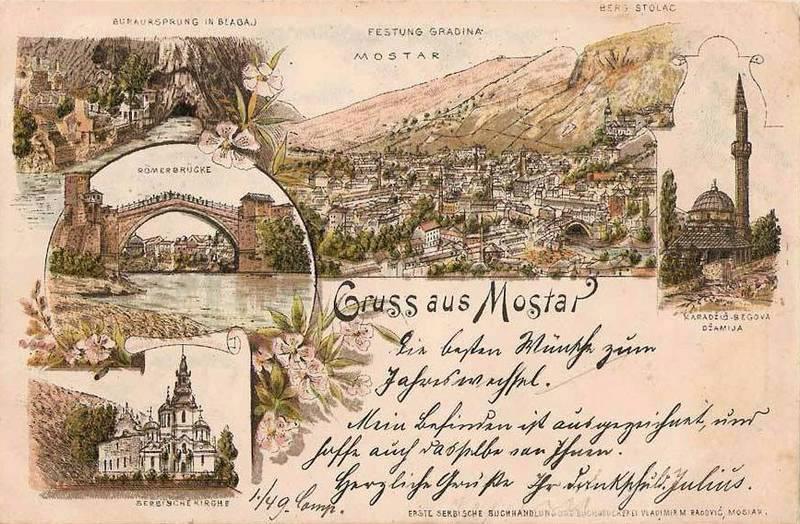 BUNAURSPRUNG IN BLAGAJ
FESTUNG GRADINA
BERG STOLAC
MOSTAR
RÖMERBRÜCKE
KARADŽIŠ-BEGOVA
DŽAMIJA
Gruss aus Mostar
Die besten Wünsche zum
Jahreswechsel.
Mein Befinden ist ausgezeichnet, und
hoffe auch dasselbe von Ihnen.
Herzliche Grüße Ihr dankschuld. Julius.
SERBISCHE KIRCHE
1/49. Comp.
ERSTE SERBISCHE BUCHHANDLUNG UND BUCHDRUCKEREI VLADIMIR M. RADOVIĆ, MOSTAR.